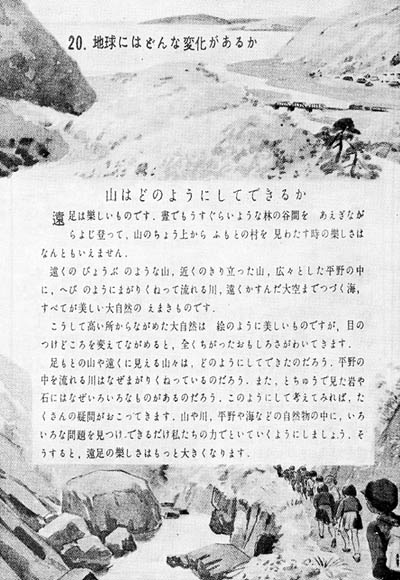 20. 地球にはどんな変化があるか
山はどのようにしてできるか
遠足は樂しいものです．晝でもうすぐらいような林の谷間を　あえぎなが
らよじ登って，山のちょう上から ふもとの村を 見わたす時の樂しさは
なんともいえません．
遠くの びょうぶ のような山，近くのきり立った山，広々とした平野の中
に，へび のようにまがりくねって流れる川，遠くかすんだ大空までつづく海，
すべてが美しい大自然の えまきものです．
こうして高い所からながめた大自然は　絵のように美しいものですが，目の
つけどころを変えてながめると，全くちがったおもしろさがわいてきます．
足もとの山や遠くに見える山々は，どのようにしてできたのだろう．平野の
中を流れる川はなぜまがりくねっているのだろう．また，とちゅうで見た岩や
石にはなぜいろいろなものがあるのだろう．このようにして考えてみれば，た
くさんの疑問がおこってきます．山や川，平野や海などの自然物の中に，いろ
いろな問題を見つけ，できるだけ私たちの力でといていくようにしましょう．そ
うすると，遠足の樂しさはもっと大きくなります．